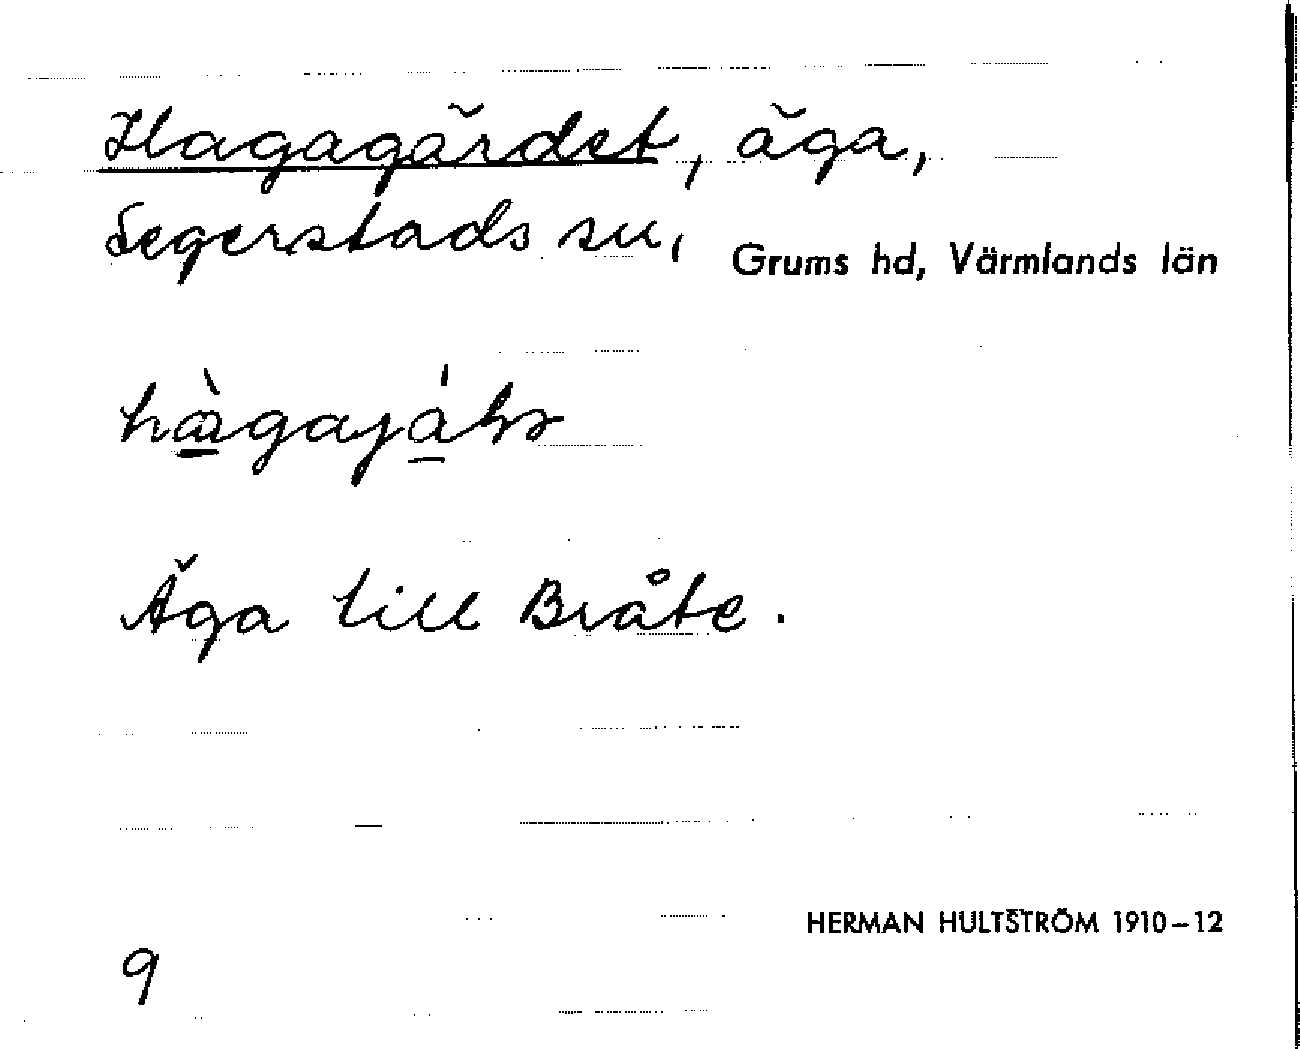 Hagagärdet, äga,
Segerstads sn,
Grums hd, Värmlands län
Äga till Bråte.
HERMAN HULTSTRÖM 1910–12
9